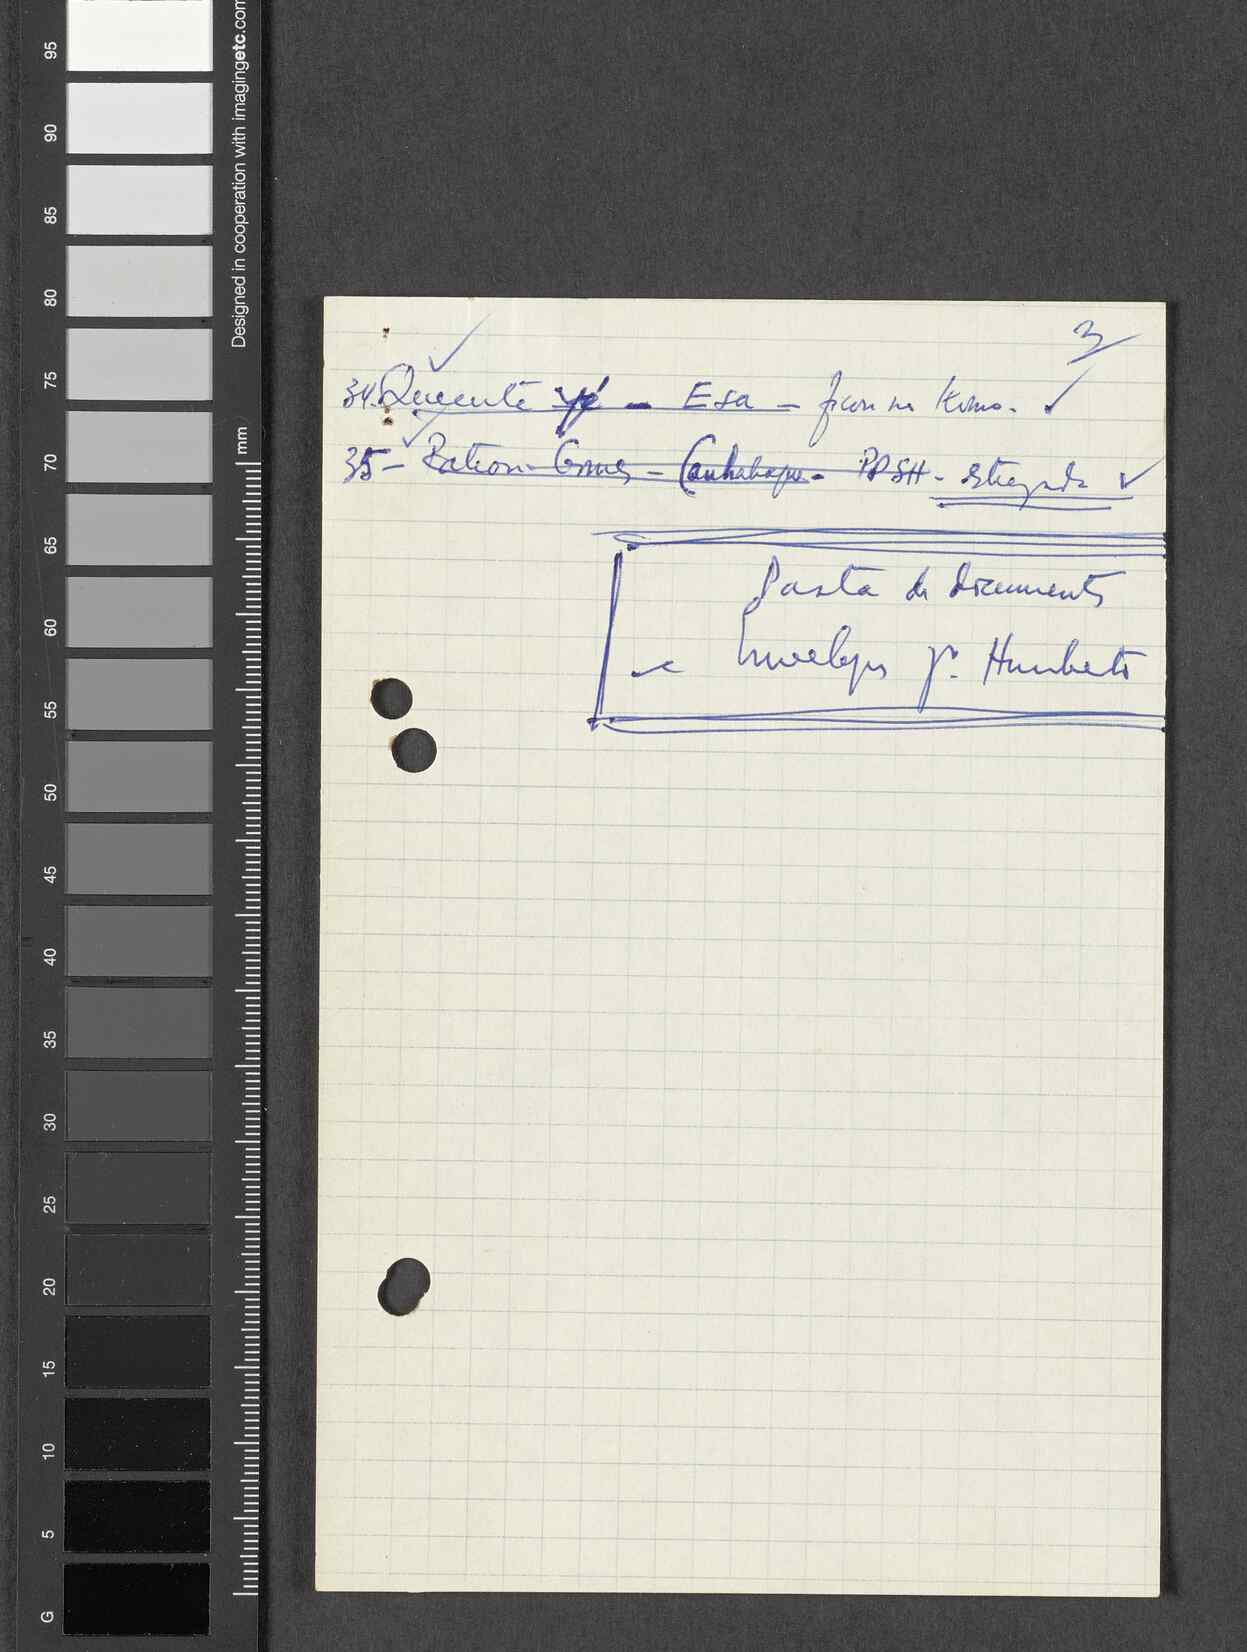 3
34. Quecuté - Esa - ficou na Komo.
35 - - PPSH - estragada
Pasta de documentos
e Envelopes pª Humberto
95
90
85
80
75
70
65
60
55
50
45
40
35
30
25
20
15
10
5
G
mm
Designed in cooperation with imagingetc.com